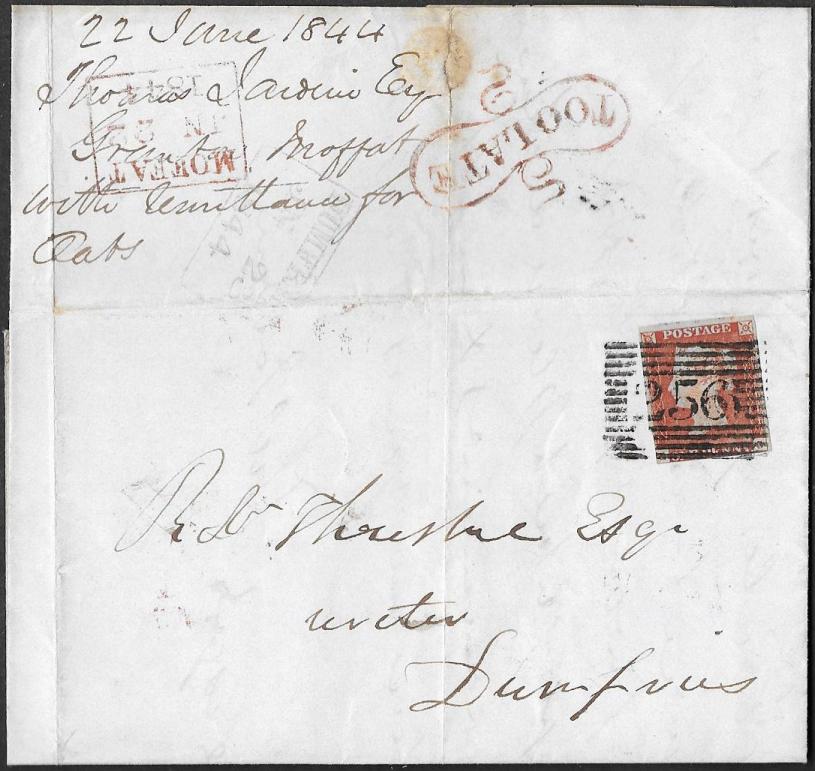 22 June 1844
Thomas Jardine Esq
Granton Moffat
with remittance for
Oats
MOFFAT
JN 22
1844
TOO LATE
DUMFRI
23
44
POSTAGE
256
Robt Threshie Esqr
writer
Dumfries